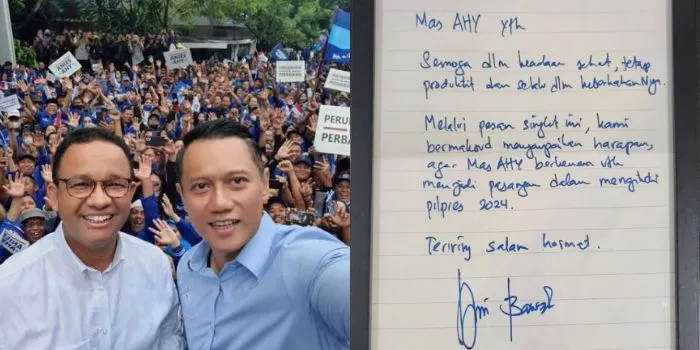 PERU
PERBA
Mas AHY yth
Semoga dlm keadaan sehat, tetap
produktif dan selalu dlm keberkahanNya.
Melalui pesan singkat ini, kami
bermaksud menyampaikan harapan,
agar Mas AHY berkenan utk
menjadi pasangan dalam mengikuti
pilpres 2024.
Teriring salam hormat.